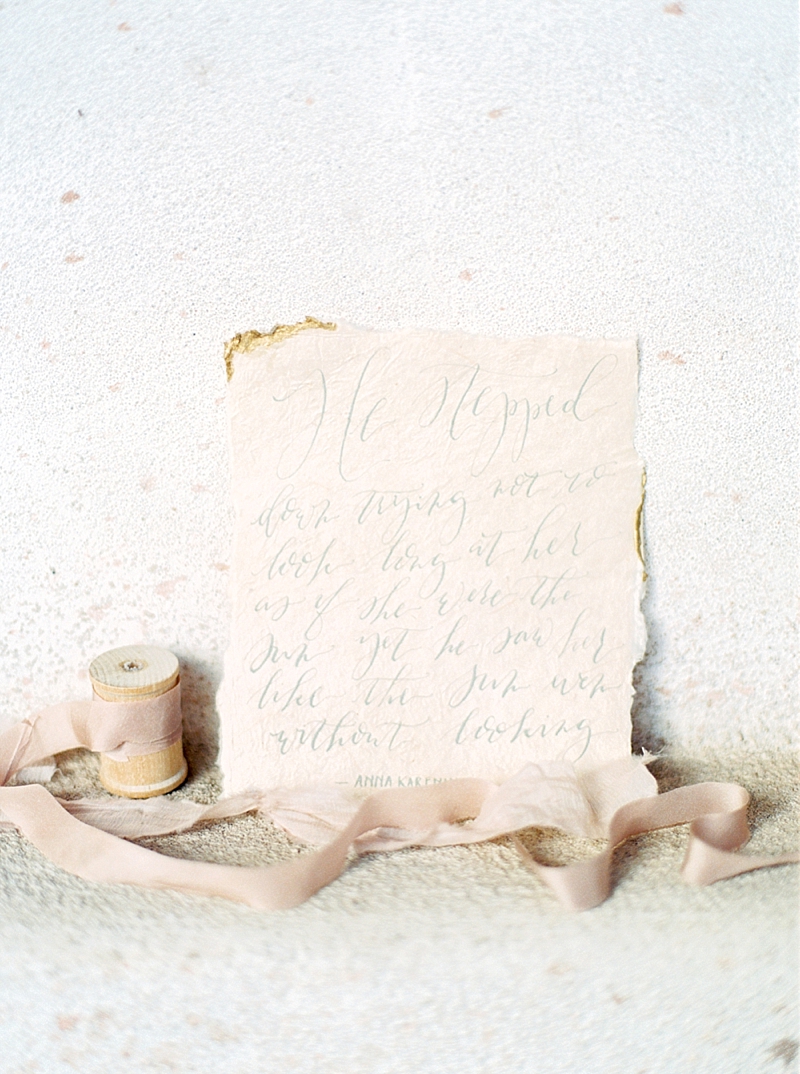 He stepped
down trying not to
look long at her
as if she were the
sun yet he saw her
like the sun even
without looking
— ANNA KARENIN